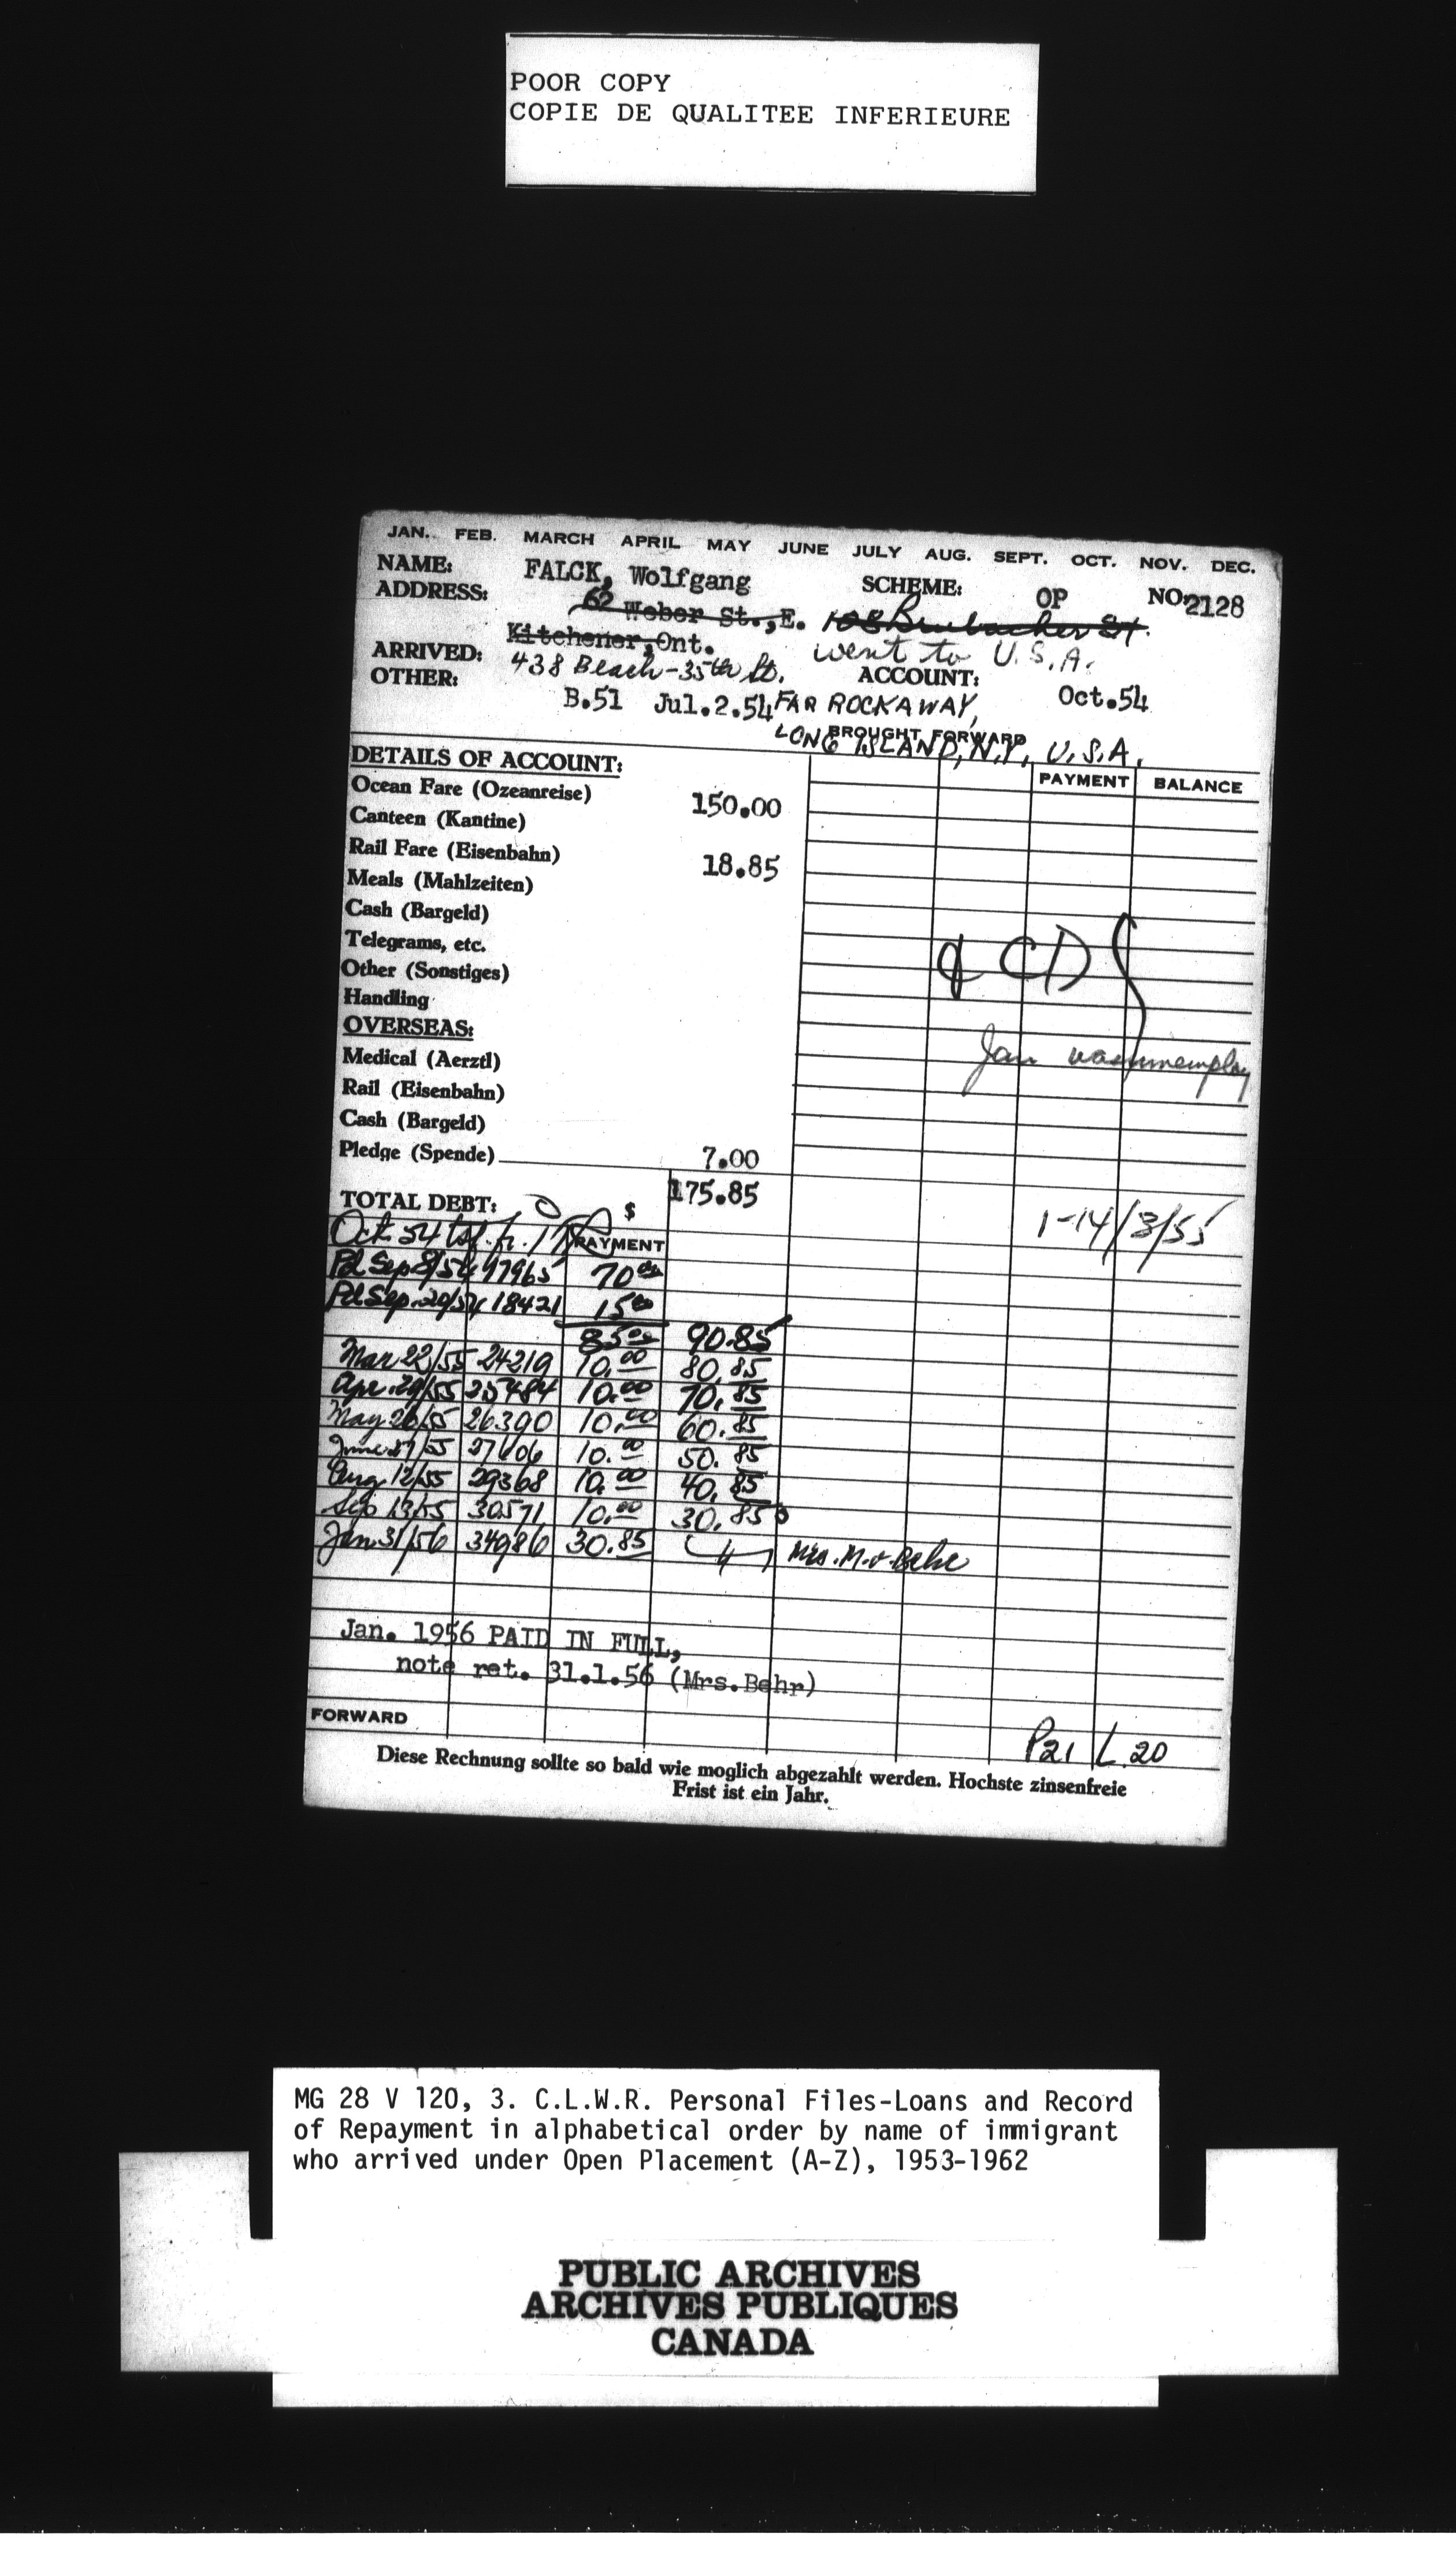 POOR COPY
COPIE DE QUALITEE INFERIEURE
JAN. FEB. MARCH APRIL MAY JUNE JULY AUG. SEPT. OCT. NOV. DEC.
NAME: FALCK, Wolfgang SCHEME: OP NO. 2128
ADDRESS: 62 Weber St., E. 108 St.
Kitchener, Ont. went to U.S.A.
ARRIVED: 438 Beach-35th St. ACCOUNT: Oct.54
OTHER: B.51 Jul.2.54 FAR ROCKAWAY,
BROUGHT FORWARD
LONG ISLAND, N.Y., U.S.A.
DETAILS OF ACCOUNT: PAYMENT BALANCE
Ocean Fare (Ozeanreise) 150.00
Canteen (Kantine)
Rail Fare (Eisenbahn) 18.85
Meals (Mahlzeiten)
Cash (Bargeld)
Telegrams, etc.
Other (Sonstiges)
Handling
OVERSEAS:
Medical (Aerztl)
Jan was unemploy
Rail (Eisenbahn)
Cash (Bargeld)
Pledge (Spende) 7.00
TOTAL DEBT: $ 175.85
1-14/3/55
Oct. 54 tsf. fr. PAYMENT
Pd Sep 8/54 17965 70.00
Pd Sep. 20/54 18421 15.00
85.00 90.85
Mar 22/55 24219 10.00 80.85
Apr. 29/55 25484 10.00 70.85
May 26/55 26390 10.00 60.85
June 27/55 27606 10.00 50.85
Aug 12/55 29368 10.00 40.85
Sep 13/55 30571 10.00 30.85
Jan 31/56 34986 30.85 Mrs. M. v. Behr
Jan. 1956 PAID IN FULL,
note ret. 31.1.56 (Mrs.Behr)
FORWARD P21 L.20
Diese Rechnung sollte so bald wie moglich abgezahlt werden. Hochste zinsenfreie
Frist ist ein Jahr.
MG 28 V 120, 3. C.L.W.R. Personal Files-Loans and Record
of Repayment in alphabetical order by name of immigrant
who arrived under Open Placement (A-Z), 1953-1962
PUBLIC ARCHIVES
ARCHIVES PUBLIQUES
CANADA